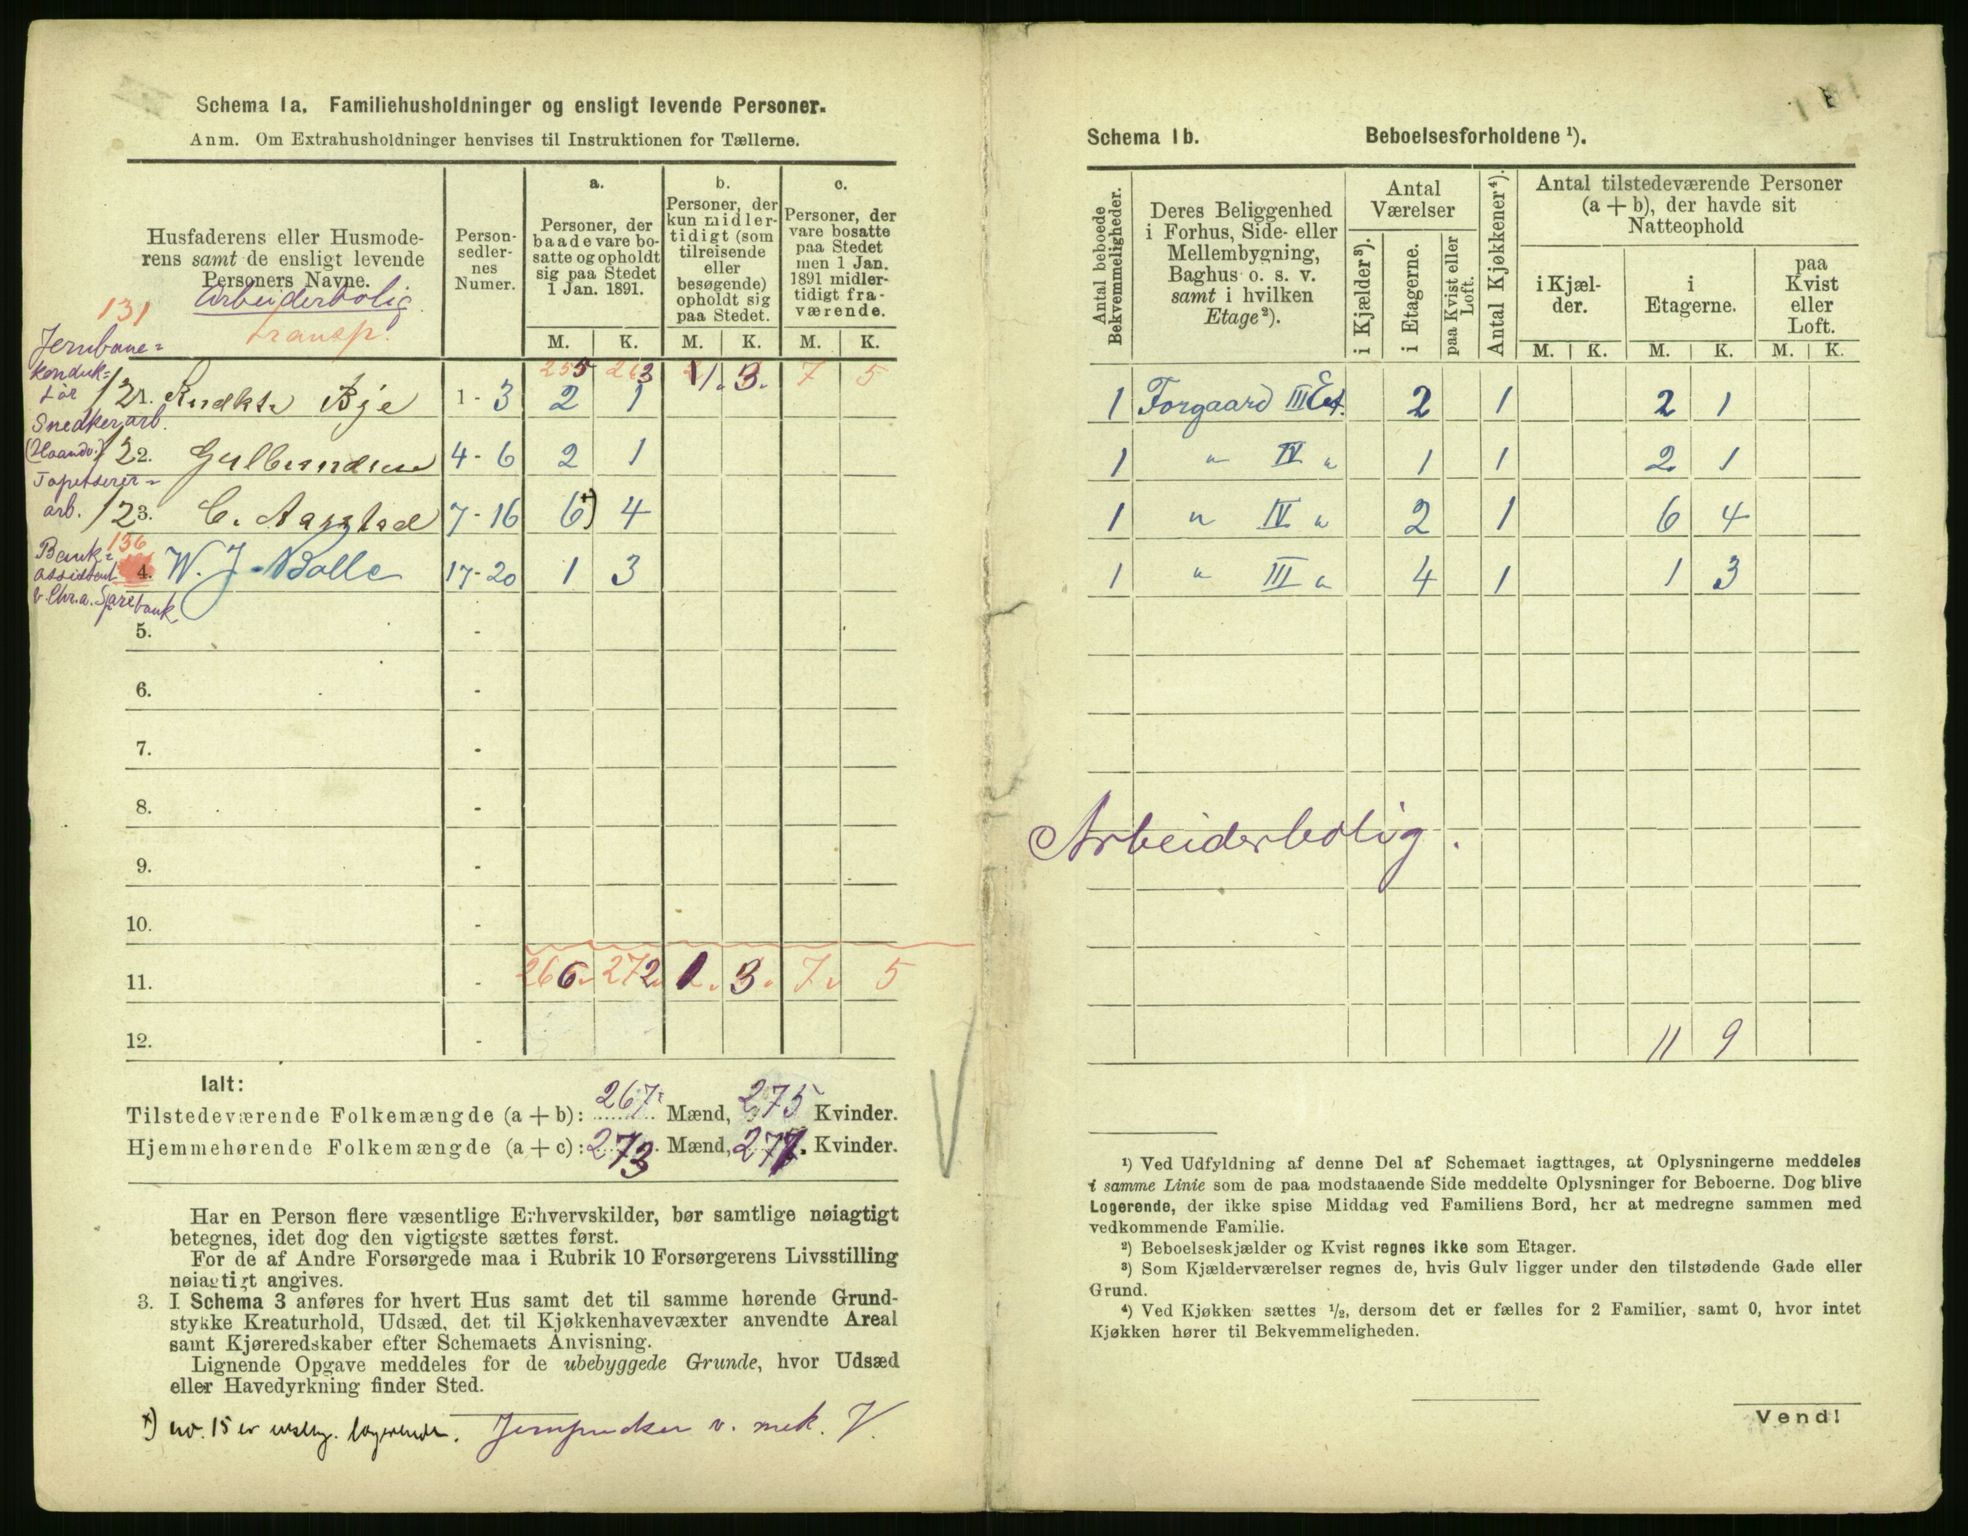 Schema 1a. Familiehusholdninger og ensligt levende Personer.
Anm. Om Extrahusholdninger henvises til Instruktionen for Tællerne.
Husfaderens eller Husmode-
rens samt de ensligt levende
Personers Navne.
Arbeiderbolig
131
transp.
Person-
sedler-
nes
Numer.
a.
Personer, der
baade vare bo-
satte og opholdt
sig paa Stedet
1 Jan. 1891.
b.
Personer, der
kun midler-
tidigt (som
tilreisende
eller
besøgende)
opholdt sig
paa Stedet.
c.
Personer, der
vare bosatte
paa Stedet
men 1 Jan.
1891 midler-
tidigt fra-
værende.
M. K. M. K. M. K.
255 263 1. 3. 7 5
Jernbane=
konduk=
tør 121. Bye 1-3 2 1
Snedkerarb.
(Haandv.) 122. Gulbrandsen 4-6 2 1
Tapetserer=
arb. 123. C. Aagstad 7-16 6 *) 4
136
Bank=
assistent 4. W. J. Bolle 17-20 1 3
v. Chr.a. Sparebank
5. -
6. -
7. -
8. -
9. -
10. -
11. - 266. 272. 1. 3. 7. 5
12. -
Ialt:
Tilstedeværende Folkemængde (a + b): 267 Mænd, 275 Kvinder.
Hjemmehørende Folkemængde (a + c): 273 Mænd, 277. Kvinder.
Har en Person flere væsentlige Erhvervskilder, bør samtlige nøiagtigt
betegnes, idet dog den vigtigste sættes først.
For de af Andre Forsørgede maa i Rubrik 10 Forsørgerens Livsstilling
nøiagtigt angives.
3. I Schema 3 anføres for hvert Hus samt det til samme hørende Grund-
stykke Kreaturhold, Udsæd, det til Kjøkkenhavevæxter anvendte Areal
samt Kjøreredskaber efter Schemaets Anvisning.
Lignende Opgave meddeles for de ubebyggede Grunde, hvor Udsæd
eller Havedyrkning finder Sted.
*) no. 15 er enslig. logerende. v. mek. V.
Schema 1b. Beboelsesforholdene ¹).
Antal beboede
Bekvemmeligheder.
Deres Beliggenhed
i Forhus, Side- eller
Mellembygning,
Baghus o. s. v.
samt i hvilken
Etage²).
Antal
Værelser
i Kjælder³).
i Etagerne.
paa Kvist eller
Loft.
Antal Kjøkkener⁴).
Antal tilstedeværende Personer
(a + b), der havde sit
Natteophold
i Kjæl-
der.
i
Etagerne.
paa
Kvist
eller
Loft.
M. K. M. K. M. K.
1 Forgaard III Et. 2 1 2 1
1 " IV " 1 1 2 1
1 " IV " 2 1 6 4
1 " III " 4 1 1 3
Arbeiderbolig.
11 9
¹) Ved Udfyldning af denne Del af Schemaet iagttages, at Oplysningerne meddeles
i samme Linie som de paa modstaaende Side meddelte Oplysninger for Beboerne. Dog blive
Logerende, der ikke spise Middag ved Familiens Bord, her at medregne sammen med
vedkommende Familie.
²) Beboelseskjælder og Kvist regnes ikke som Etager.
³) Som Kjælderværelser regnes de, hvis Gulv ligger under den tilstødende Gade eller
Grund.
⁴) Ved Kjøkken sættes ½, dersom det er fælles for 2 Familier, samt 0, hvor intet
Kjøkken hører til Bekvemmeligheden.
Vend!